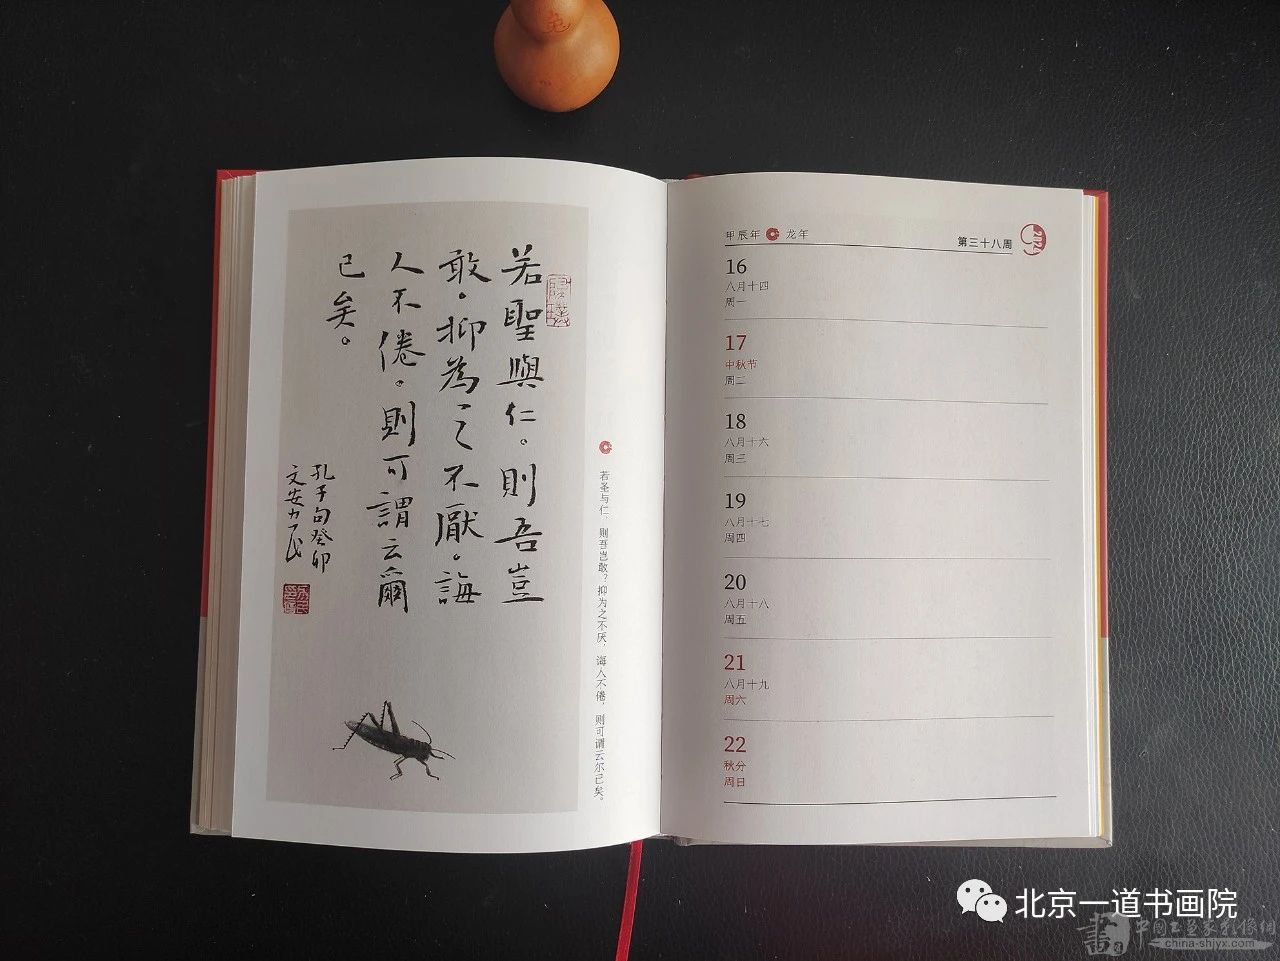 若聖與仁。則吾豈
敢。抑為之不厭。誨
人不倦。則可謂云爾
已矣。
孔子句癸卯
文安
若圣与仁，则吾岂敢？抑为之不厌，诲人不倦，则可谓云尔已矣。
甲辰年 龙年
第三十八周
2024
16
八月十四
周一
17
中秋节
周二
18
八月十六
周三
19
八月十七
周四
20
八月十八
周五
21
八月十九
周六
22
秋分
周日
北京一道书画院
中国书画家影像网
china-shjyx.com